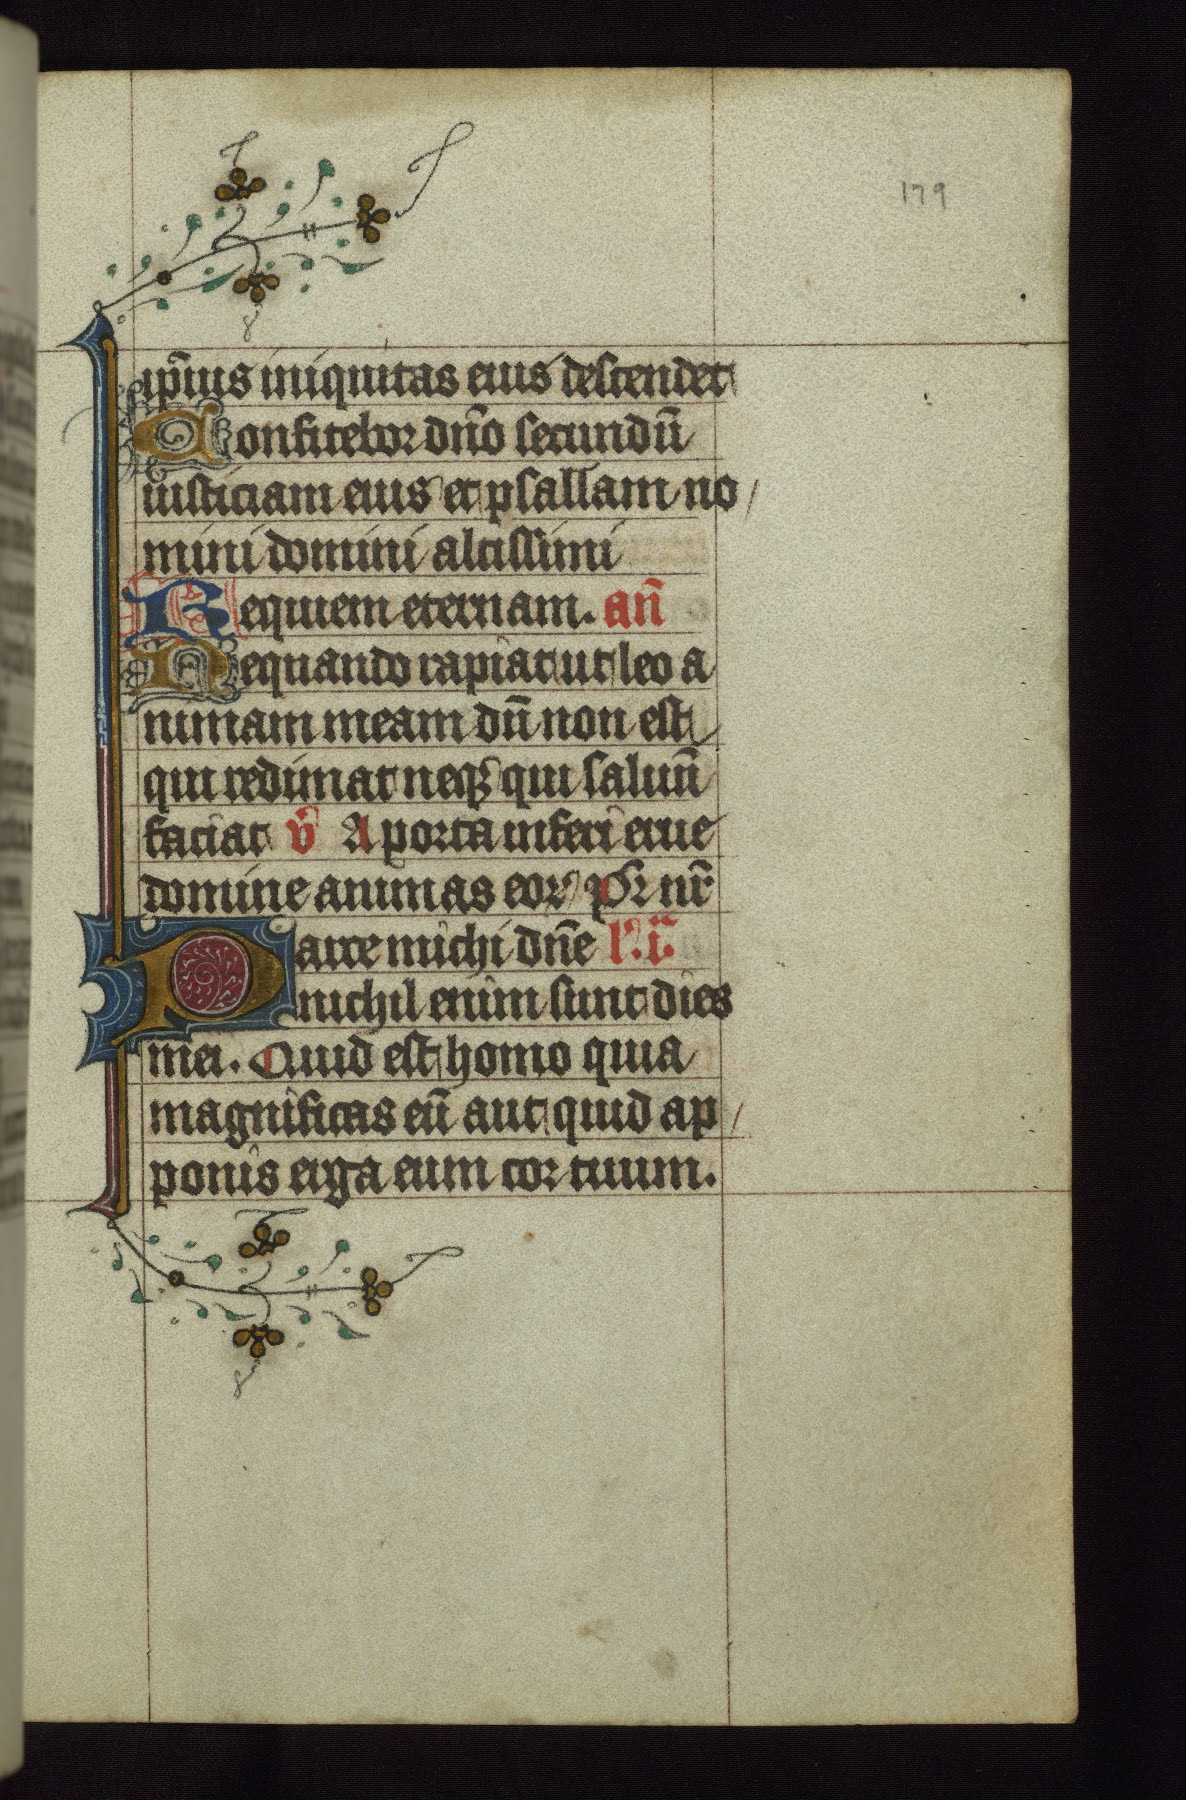 179
ip̄ius iniquitas eius descendet
Confitebor dn̄o secundū
iusticiam eius et psallam no/
mini domini altissimi
Requiem eternam. an̄
Nequando rapiat ut leo a
nimam meam dū non est
qui redimat neqꝫ qui saluū
faciat v̄ A porta inferi erue
domine animas eoꝝ pr̄ nr̄
Parce michi dn̄e l'. i.
nichil enim sunt dies
mei. Quid est homo quia
magnificas eū aut quid ap/
ponis erga eum cor tuum.